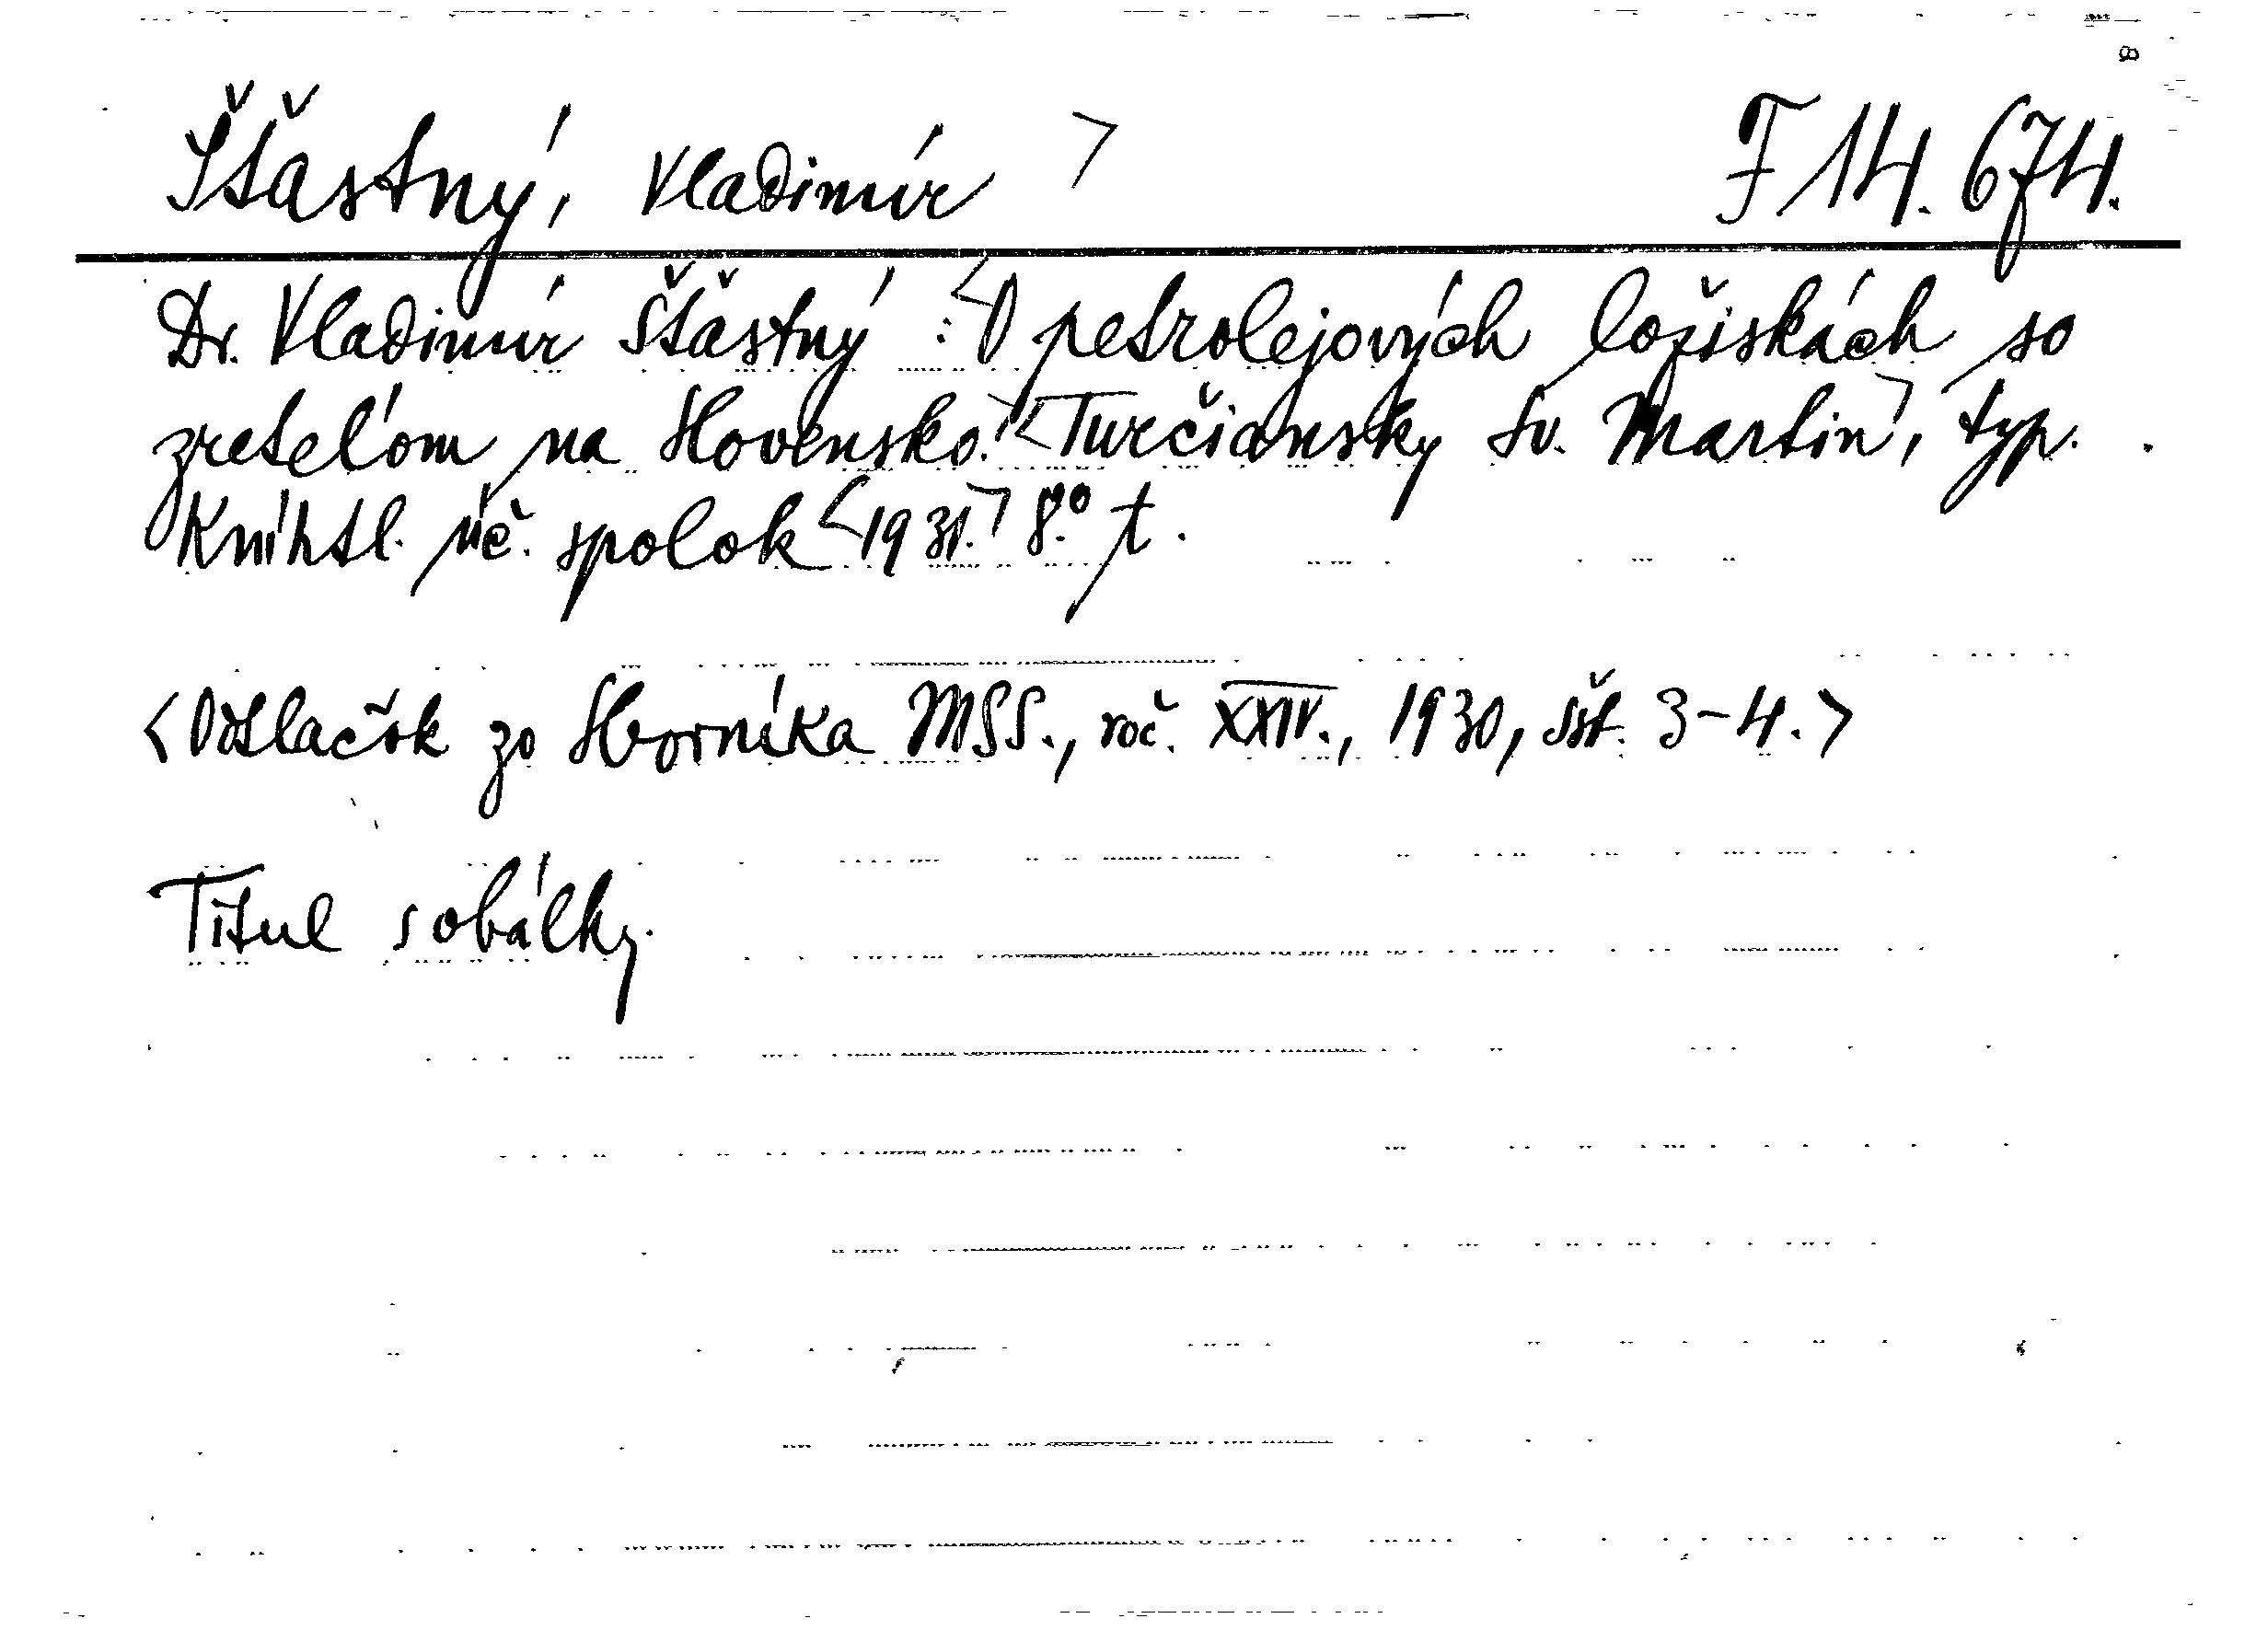 Šťastný, Vladimír > F 14.674.
Dr. Vladimír Šťastný : <O petrolejových ložiskách so
zreteľom na Slovensko.> <Turčiansky Sv. Martin>, typ.
Kníhtl. úč. spolok <1931.> 8.° t.
<Odtlačok zo Sborníka MSS., roč. XXIV., 1930, sšt. 3-4.>
Titul s obálky.